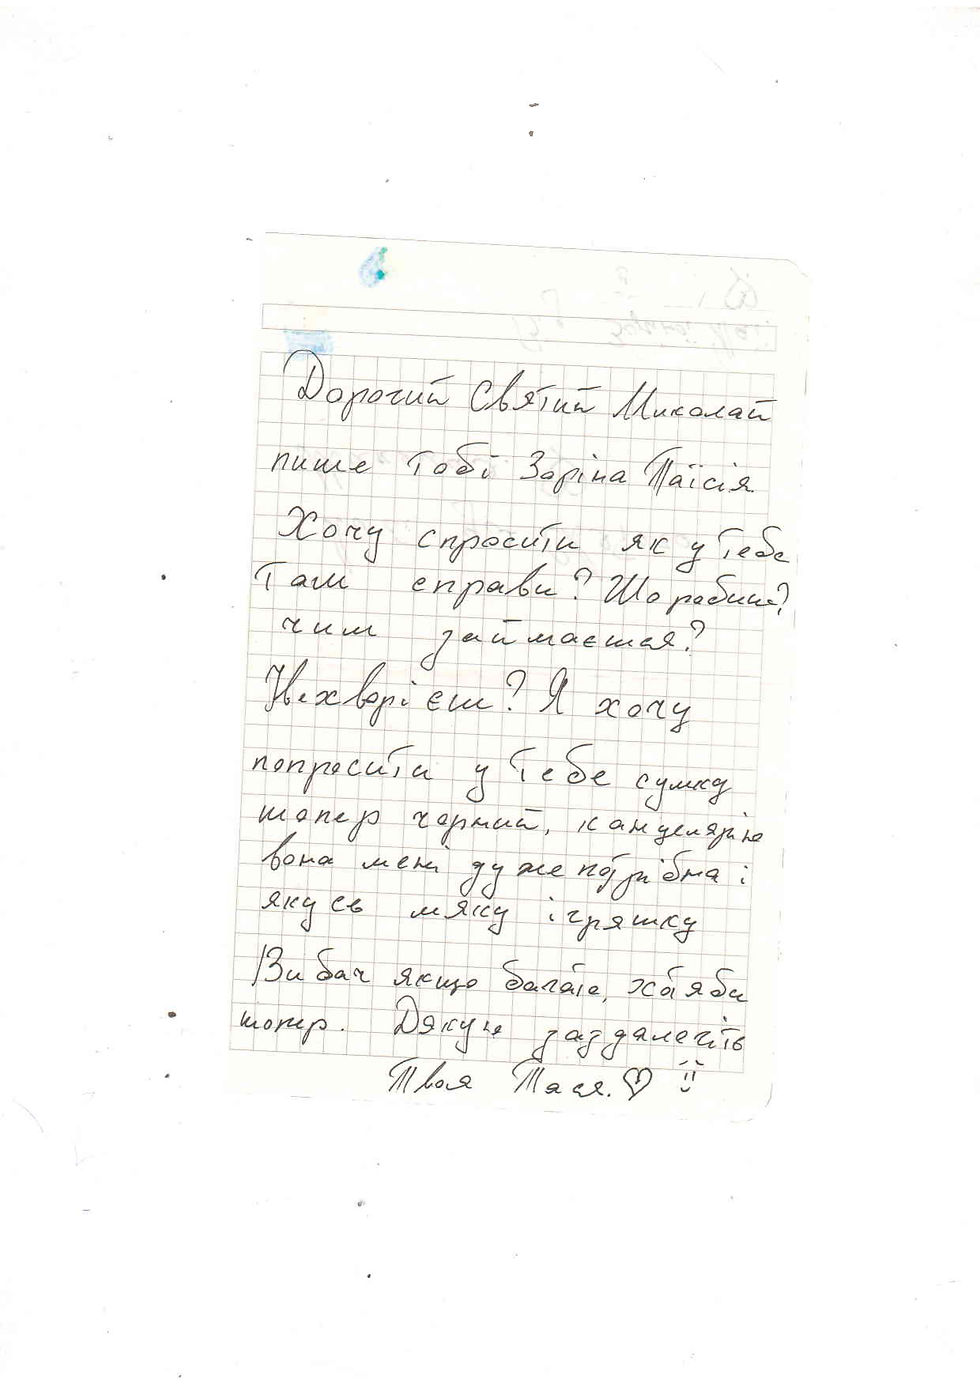 Дорогий Святий Миколай
пише тобі Заріна Таїсія
Хочу спросити як у тебе
там справи? Шо рабиш?
чим займаєшся?
Нехворієш? Я хочу
попросити у тебе сумку
шопер чорний, канцелярію
вона мені дуже потрібна і
якусь мяку іграшку
Вибач якщо багато, хотяби
шопер. Дякую заздалегіть
Твоя Тася. ♡ ☺